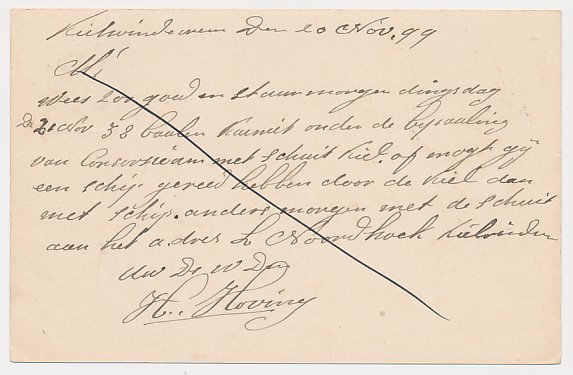 Kielwindeweer Den 20 Nov. 99
M!
wees zoo goed en stuur morgen dingsdag
De 21 Nov 38 baalen Kainiet onder de bepaaling
van Consorsieam met schuit Kiel. of mogt gij
een schip gereed hebben door de Kiel dan
met schip. anders morgen met de schuit
aan het adres H Noordhoek Kielwinder
Uw Dw Dr
H. Hoving